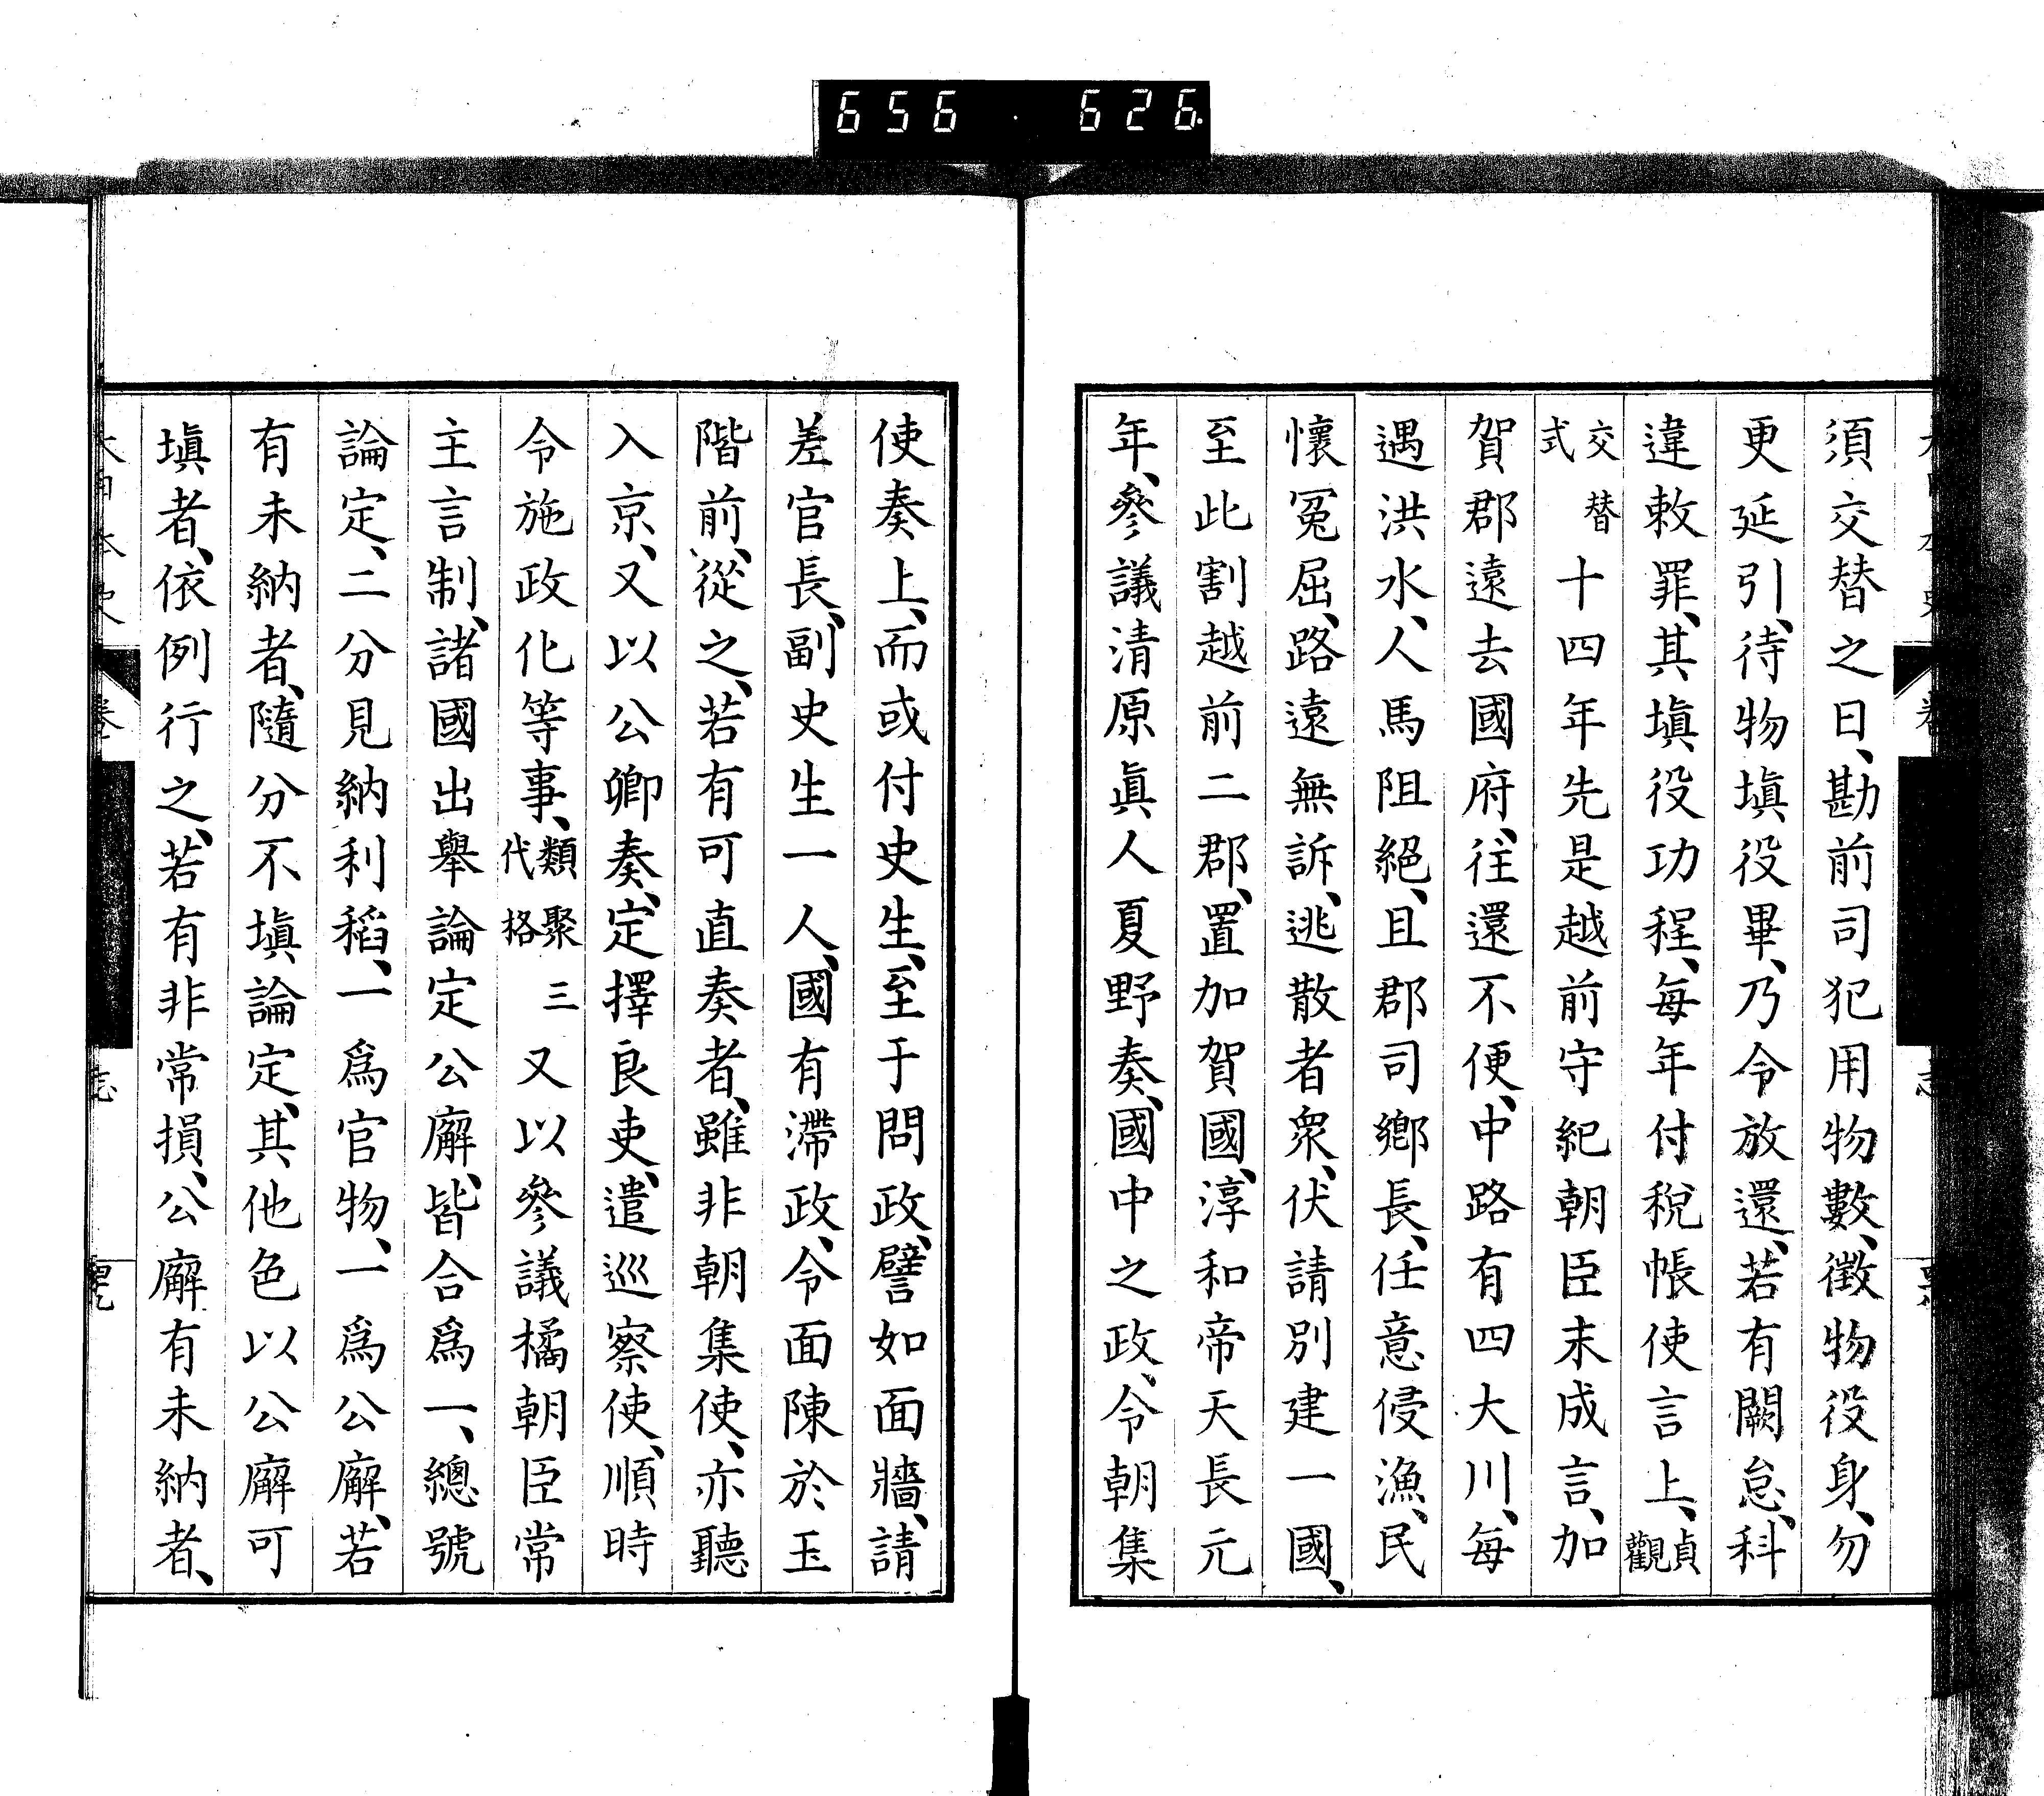 656 626
須交替之日、勘前司犯用物數、徵物役身、勿
更延引、待物塡役畢、乃令放還、若有闕怠、科
違敕罪、其塡役功程、每年付稅帳使言上、貞觀
交替式十四年先是越前守紀朝臣末成言、加
賀郡遠去國府、往還不便、中路有四大川、每
遇洪水、人馬阻絕、且郡司鄉長、任意侵漁、民
懷冤屈、路遠無訴、逃散者衆、伏請別建一國、
至此割越前二郡、置加賀國、淳和帝天長元
年、參議清原眞人夏野奏、國中之政、令朝集
使奏上、而或付史生、至于問政、譬如面牆、請
差官長、副史生一人、國有滯政、令面陳於玉
階前、從之、若有可直奏者、雖非朝集使、亦聽
入京、又以公卿奏、定擇良吏、遣巡察使、順時
令施政化等事、類聚三代格又以參議橘朝臣常
主言制、諸國出舉論定公廨、皆合爲一、總號
論定、二分見納利稻、一爲官物、一爲公廨、若
有未納者、隨分不塡論定、其他色以公廨可
塡者、依例行之、若有非常損、公廨有未納者、
大日本史 卷 志